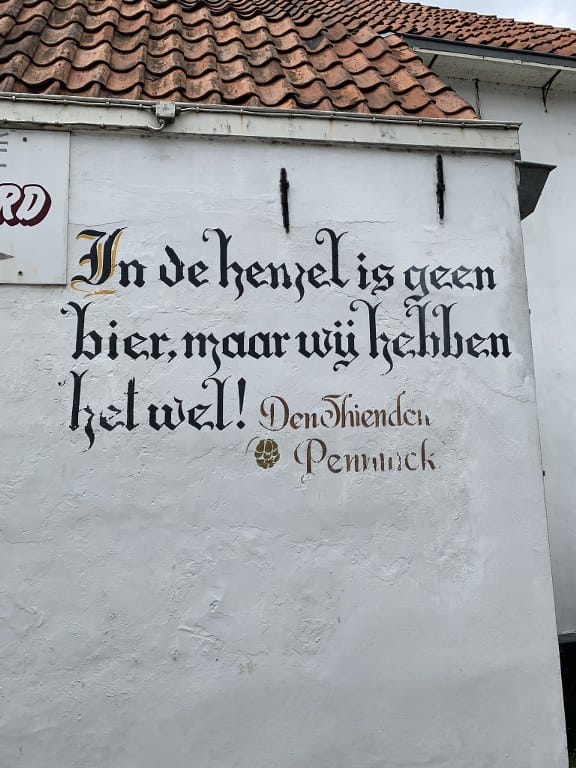 RD
In de hemel is geen
bier, maar wij hebben
het wel! Den Thienden
Penninck